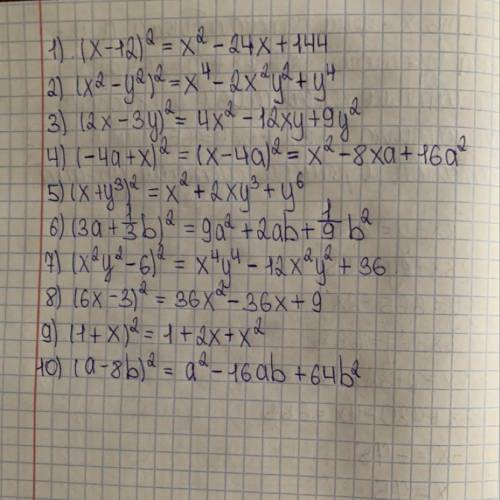 1) (x-12)² = x² - 24x + 144
2) (x² - y²)² = x⁴ - 2x²y² + y⁴
3) (2x - 3y)² = 4x² - 12xy + 9y²
4) (-4a + x)² = (x - 4a)² = x² - 8xa + 16a²
5) (x + y³)² = x² + 2xy³ + y⁶
6) (3a + 1/3 b)² = 9a² + 2ab + 1/9 b²
7) (x²y² - 6)² = x⁴y⁴ - 12x²y² + 36
8) (6x - 3)² = 36x² - 36x + 9
9) (1 + x)² = 1 + 2x + x²
10) (a - 8b)² = a² - 16ab + 64b²